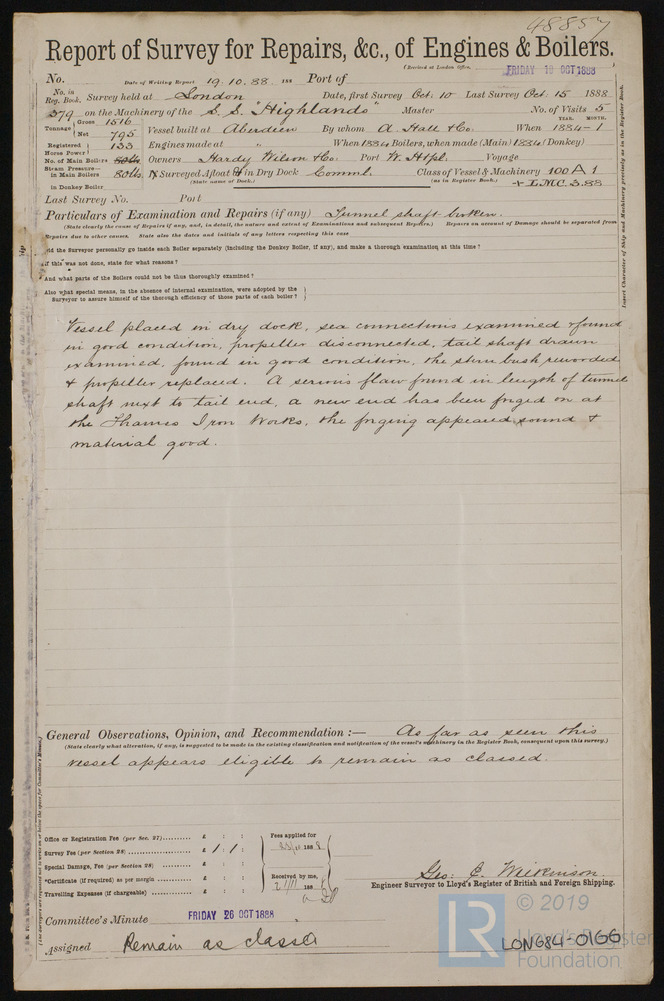 48857
Report of Survey for Repairs, &c., of Engines & Boilers.
(Received at London Office, FRIDAY 19 OCT 1888
No. Date of Writing Report 19.10.88. 188 Port of
No. in Reg. Book. Survey held at London Date, first Survey Oct. 10 Last Survey Oct. 15 1888
579 on the Machinery of the S.S. "Highlands" Master No. of Visits 5
Tonnage Gross 1516 Net 795 Vessel built at Aberdeen By whom A. Hall & Co. When YEAR. MONTH. 1884-1
Registered Horse Power 133 Engines made at " When 1884 Boilers, when made (Main) 1884 (Donkey)
No. of Main Boilers Owners Hardy Wilson & Co. Port W. Htpl. Voyage
Steam Pressure in Main Boilers 80 lbs. Surveyed Afloat or in Dry Dock Comml. Class of Vessel & Machinery 100 A 1
in Donkey Boiler (State name of Dock.) (as in Register Book.) + L.M.C. 3.88
Last Survey No. Port
Particulars of Examination and Repairs (if any) Tunnel shaft broken.
(State clearly the cause of Repairs if any, and, in detail, the nature and extent of Examinations and subsequent Repairs.) Repairs on account of Damage should be separated from
Repairs due to other causes. State also the dates and initials of any letters respecting this case
Did the Surveyor personally go inside each Boiler separately (including the Donkey Boiler, if any), and make a thorough examination at this time?
If this was not done, state for what reasons?
And what parts of the Boilers could not be thus thoroughly examined?
Also what special means, in the absence of internal examination, were adopted by the
Surveyor to assure himself of the thorough efficiency of those parts of each boiler?
Vessel placed in dry dock, sea connections examined & found
in good condition, propeller disconnected, tail shaft drawn
examined, found in good condition, the stern bush rewooded
& propeller replaced. A serious flaw found in length of tunnel
shaft next to tail end, a new end has been forged on at
the Thames Iron Works, the forging appeared sound &
material good.
General Observations, Opinion, and Recommendation :— As far as seen this
(State clearly what alteration, if any, is suggested to be made in the existing classification and notification of the vessel's machinery in the Register Book, consequent upon this survey.)
vessel appears eligible to remain as classed.
Office or Registration Fee (per Sec. 27) £ : :
Survey Fee (per Section 28) £ 1 : 1 :
Special Damage, Fee (per Section 28) £ : :
*Certificate (if required) as per margin £ : :
Travelling Expenses (if chargeable) £ : :
Fees applied for
188
Received by me,
188
Geo: C. Wilkinson.
Engineer Surveyor to Lloyd's Register of British and Foreign Shipping.
Committee's Minute FRIDAY 26 OCT 1888
Assigned Remain as classed
Insert Character of Ship and Machinery precisely as in the Register Book.
© 2019
LR
Lloyd's Register
Foundation
LONG84-0166